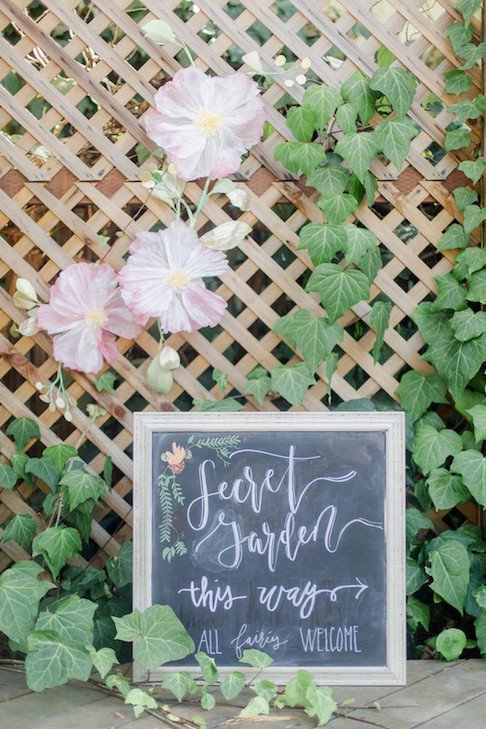 Secret
Garden
this way
ALL fairies WELCOME